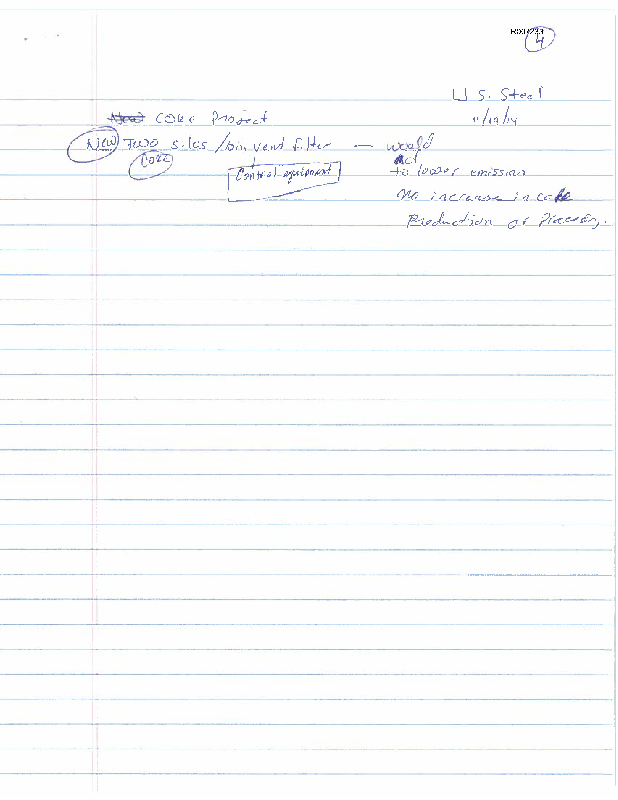 4
U.S. Steel
11/19/14
New Coke Project
New Two silos / bin vent filter — would
Coke
Control equipment
act
to lower emission
No increase in coke
Production or